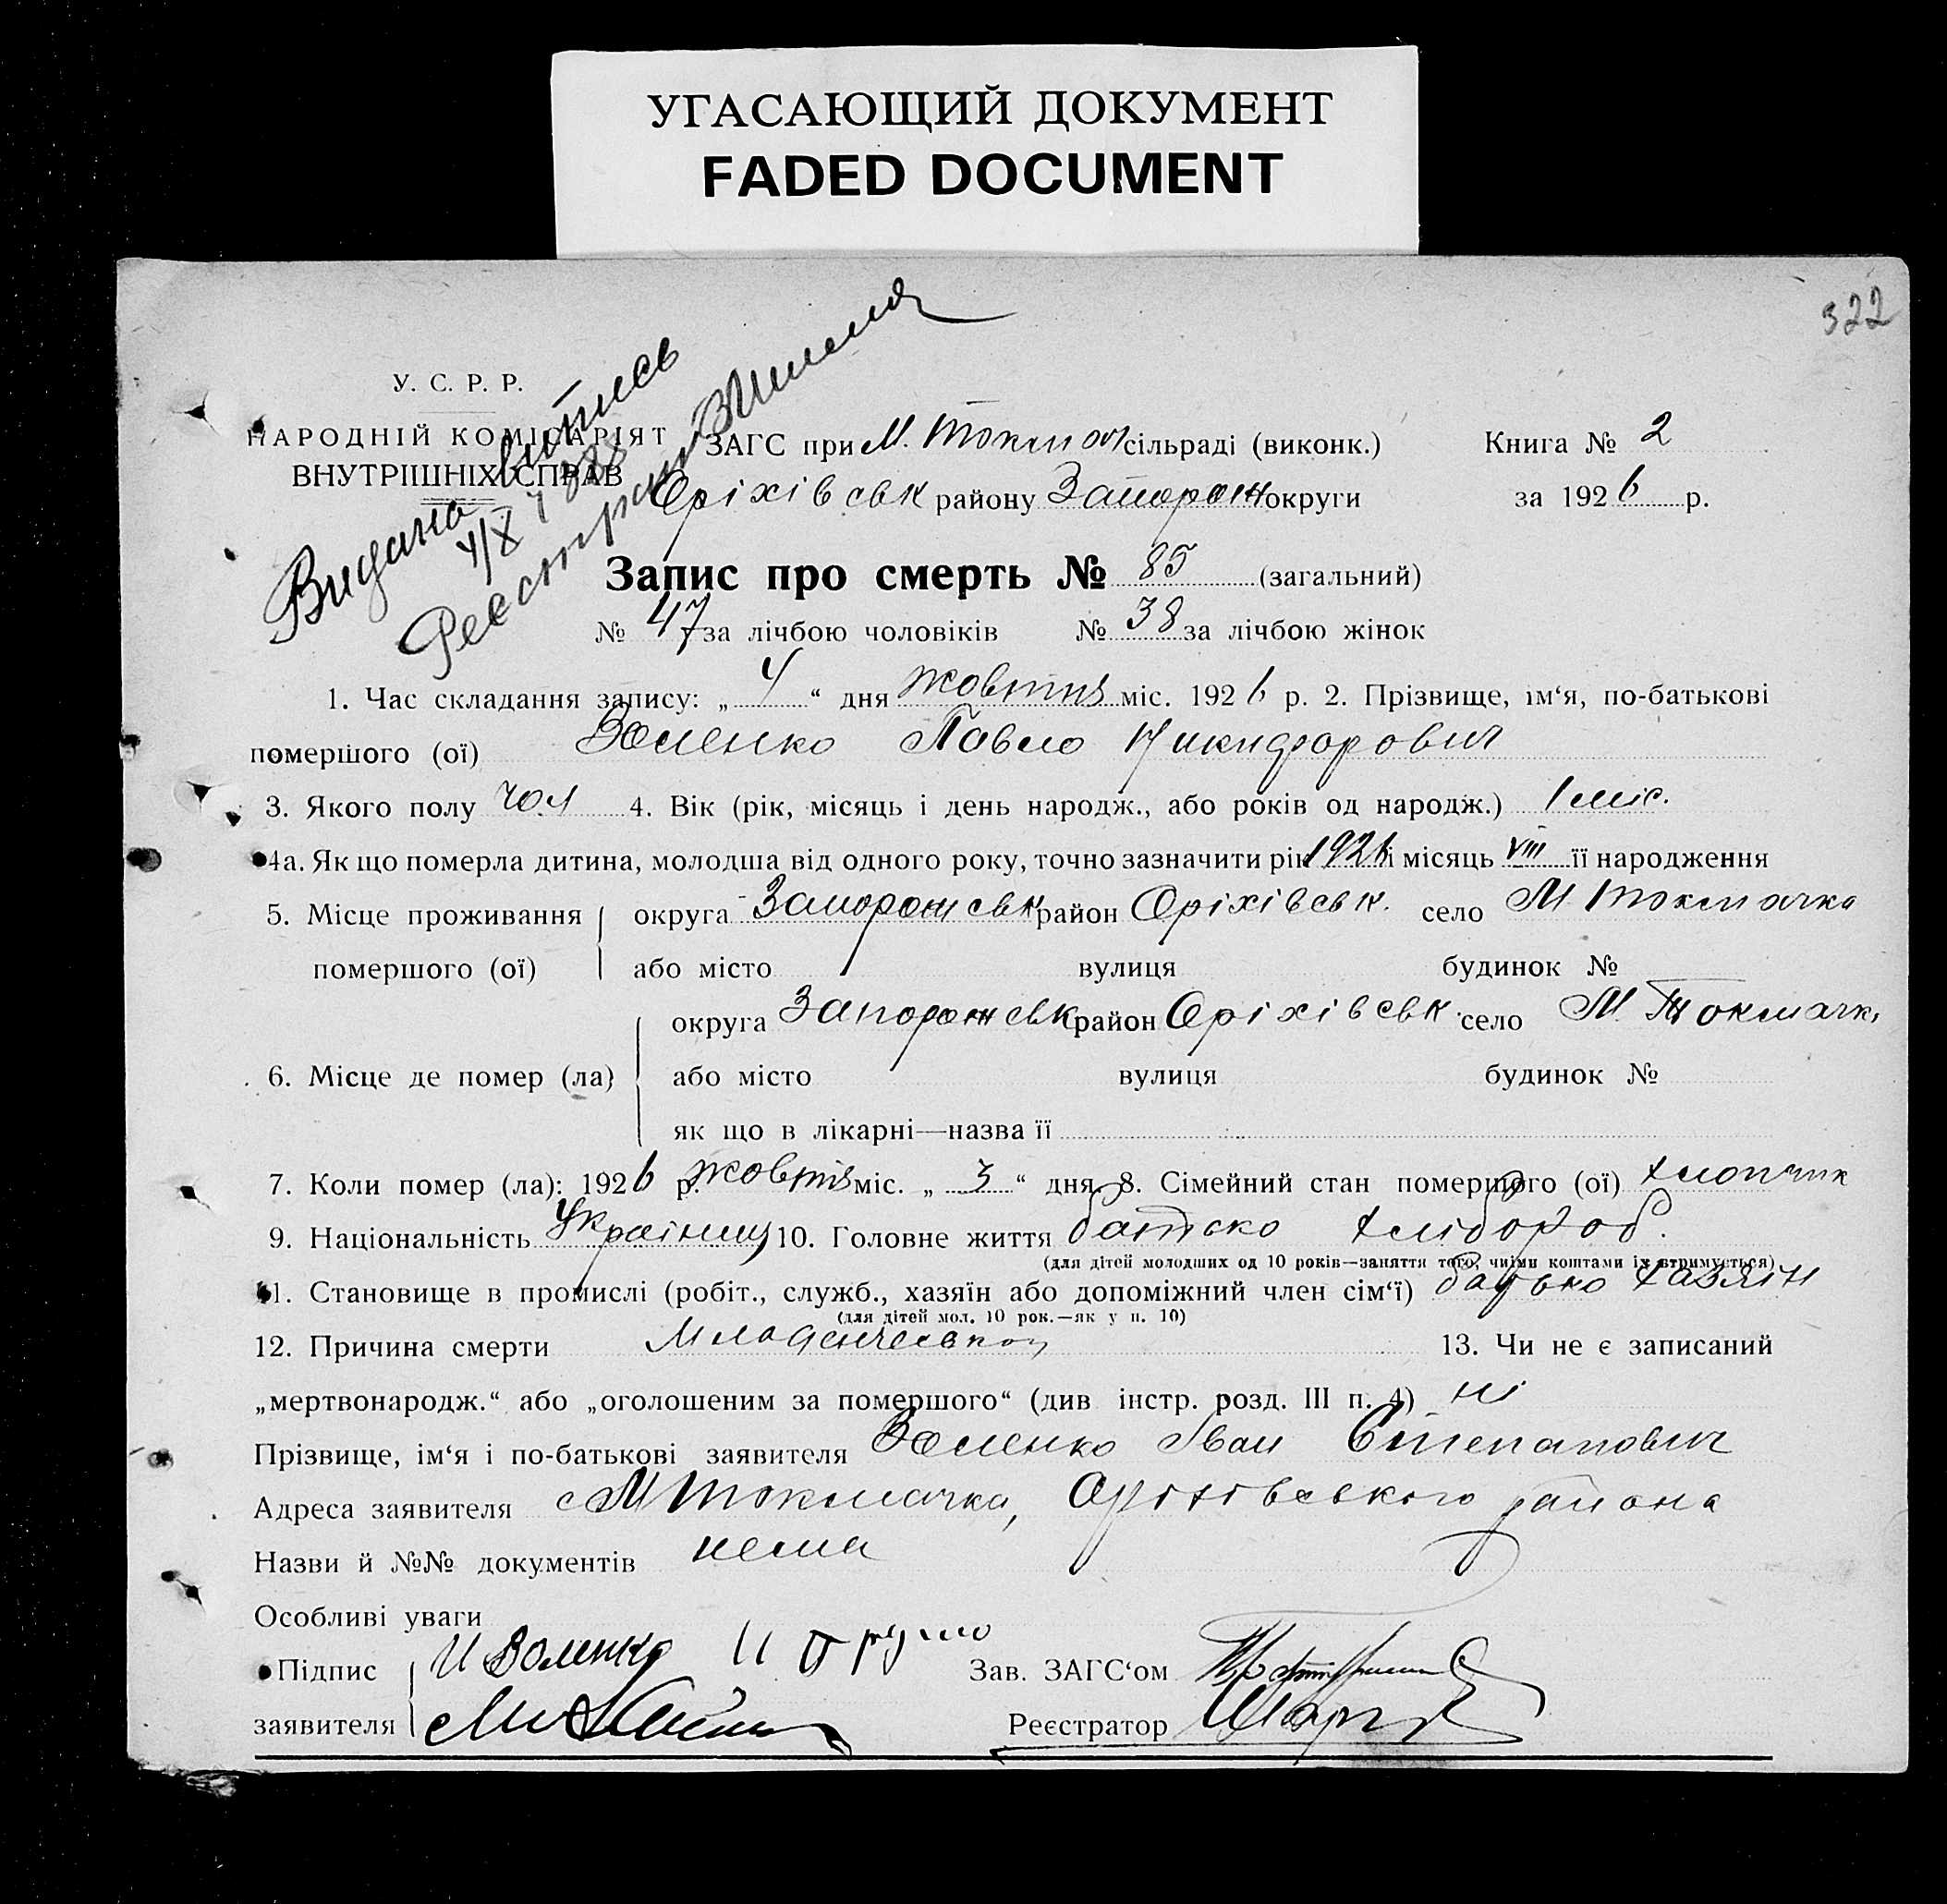 УГАСАЮЩИЙ ДОКУМЕНТ
FADED DOCUMENT
322
У. С. Р. Р.
НАРОДНІЙ КОМІСАРІЯТ
ВНУТРІШНІХ СПРАВ
Видана випись
4/X
ЗАГС при М. Токмач сільраді (виконк.) Книга № 2
Оріхівськ району Запорож округи за 1926 р.
Запис про смерть № 85 (загальний)
№ 47 за лічбою чоловіків № 38 за лічбою жінок
1. Час складання запису: „ 4 “ дня жовтня міс. 1926 р. 2. Прізвище, ім‘я, по-батькові
помершого (ої) Воленко Павло Никифорович
3. Якого полу чол 4. Вік (рік, місяць і день народж., або років од народж.) 1 міс.
4а. Як що померла дитина, молодша від одного року, точно зазначити рік 1926 і місяць VIII її народження
5. Місце проживання округа Запорожськ район Оріхівськ. село М Токмачка
помершого (ої) або місто вулиця будинок №
округа Запорожськ район Оріхівськ. село М. Токмачк
6. Місце де помер (ла) або місто вулиця будинок №
як що в лікарні—назва її
7. Коли помер (ла): 1926 р. жовтня міс. „ 3 “ дня. 8. Сімейний стан помершого (ої) хлопчик
9. Національність Українец 10. Головне життя батько хлібороб.
(для дітей молодших од 10 років—заняття того, чиїми коштами їх втримується)
11. Становище в промислі (робіт., служб., хазяїн або допоміжний член сім‘ї) батько хазяїн
(для дітей мол. 10 рок.—як у п. 10)
12. Причина смерти 13. Чи не є записаний
„мертвонародж.“ або „оголошеним за помершого“ (див інстр. розд. III п. 4) ні
Прізвище, ім‘я і по-батькові заявителя Воленко Іван Степанович
Адреса заявителя с М Токмачка, Оріхівського района
Назви й №№ документів нема
Особливі уваги
Підпис И Воленко Зав. ЗАГС‘ом
заявителя Реєстратор